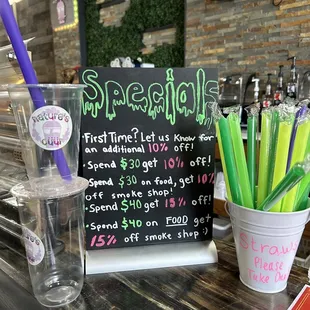 Specials
·First Time? Let us Know for
an additional 10% off!
·Spend $30 get 10% off!
·Spend $30 on food, get 10%
off smoke shop!
·Spend $40 get 15% off!
·Spend $40 on FOOD get
15% off smoke shop!
Nature's
Straws
Please
Take One